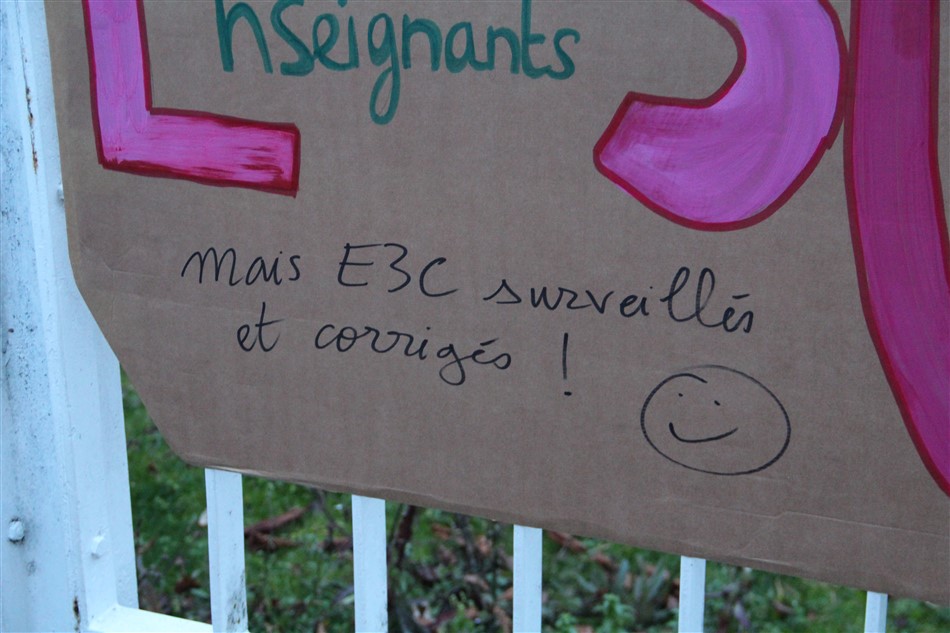 nseignants
Mais E3C surveillés
et corrigés !